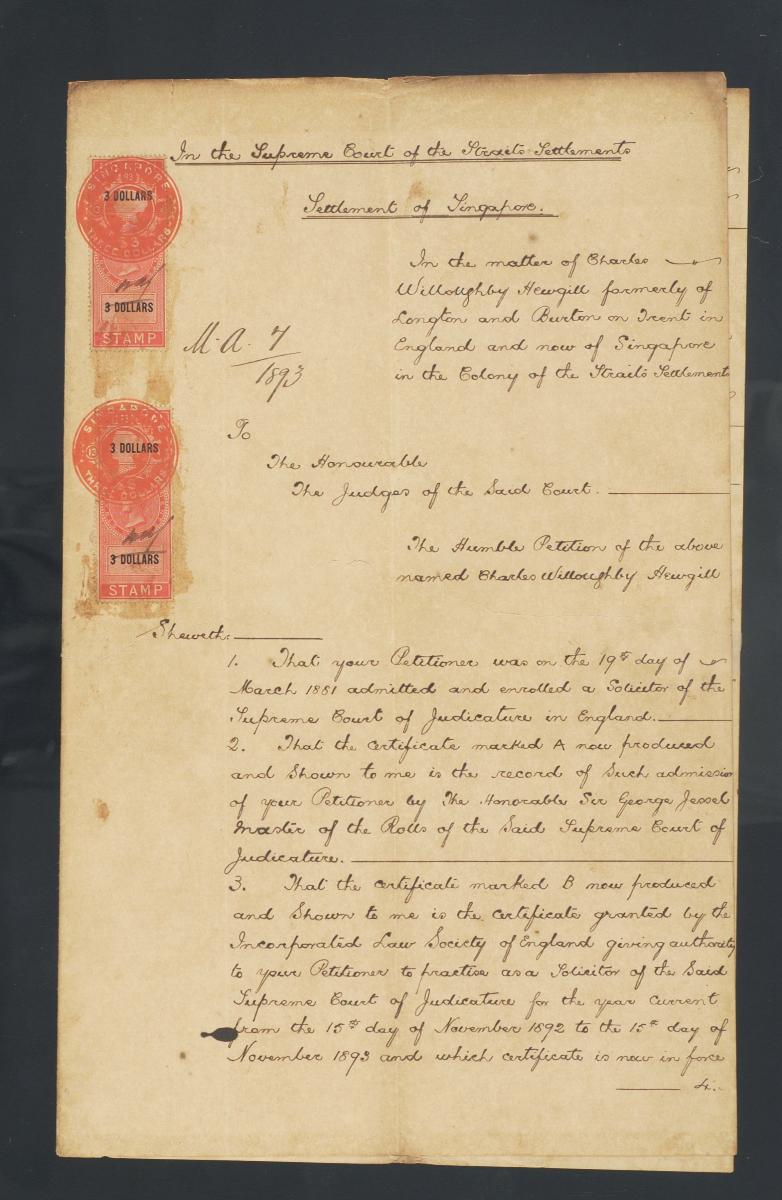 In the Supreme Court of the Straits Settlements
Settlement of Singapore.
SINGAPORE
3 DOLLARS
THREE DOLLARS
3 DOLLARS
STAMP
In the matter of Charles
Willoughby Hewgill formerly of
Longton and Burton on Trent in
England and now of Singapore
in the Colony of the Straits Settlements
M. A. 7
1893
SINGAPORE
3 DOLLARS
THREE DOLLARS
3 DOLLARS
STAMP
To
The Honourable
The Judges of the Said Court.
The Humble Petition of the above
named Charles Willoughby Hewgill
Sheweth:
1. That your Petitioner was on the 19th day of
March 1881 admitted and enrolled a Solicitor of the
Supreme Court of Judicature in England.
2. That the certificate marked A now produced
and Shown to me is the record of Such admission
of your Petitioner by The Honorable Sir George Jessel
Master of the Rolls of the Said Supreme Court of
Judicature.
3. That the certificate marked B now produced
and Shown to me is the certificate granted by the
Incorporated Law Society of England giving authority
to your Petitioner to practise as a Solicitor of the Said
Supreme Court of Judicature for the year current
from the 15th day of November 1892 to the 15th day of
November 1893 and which certificate is now in force
4.